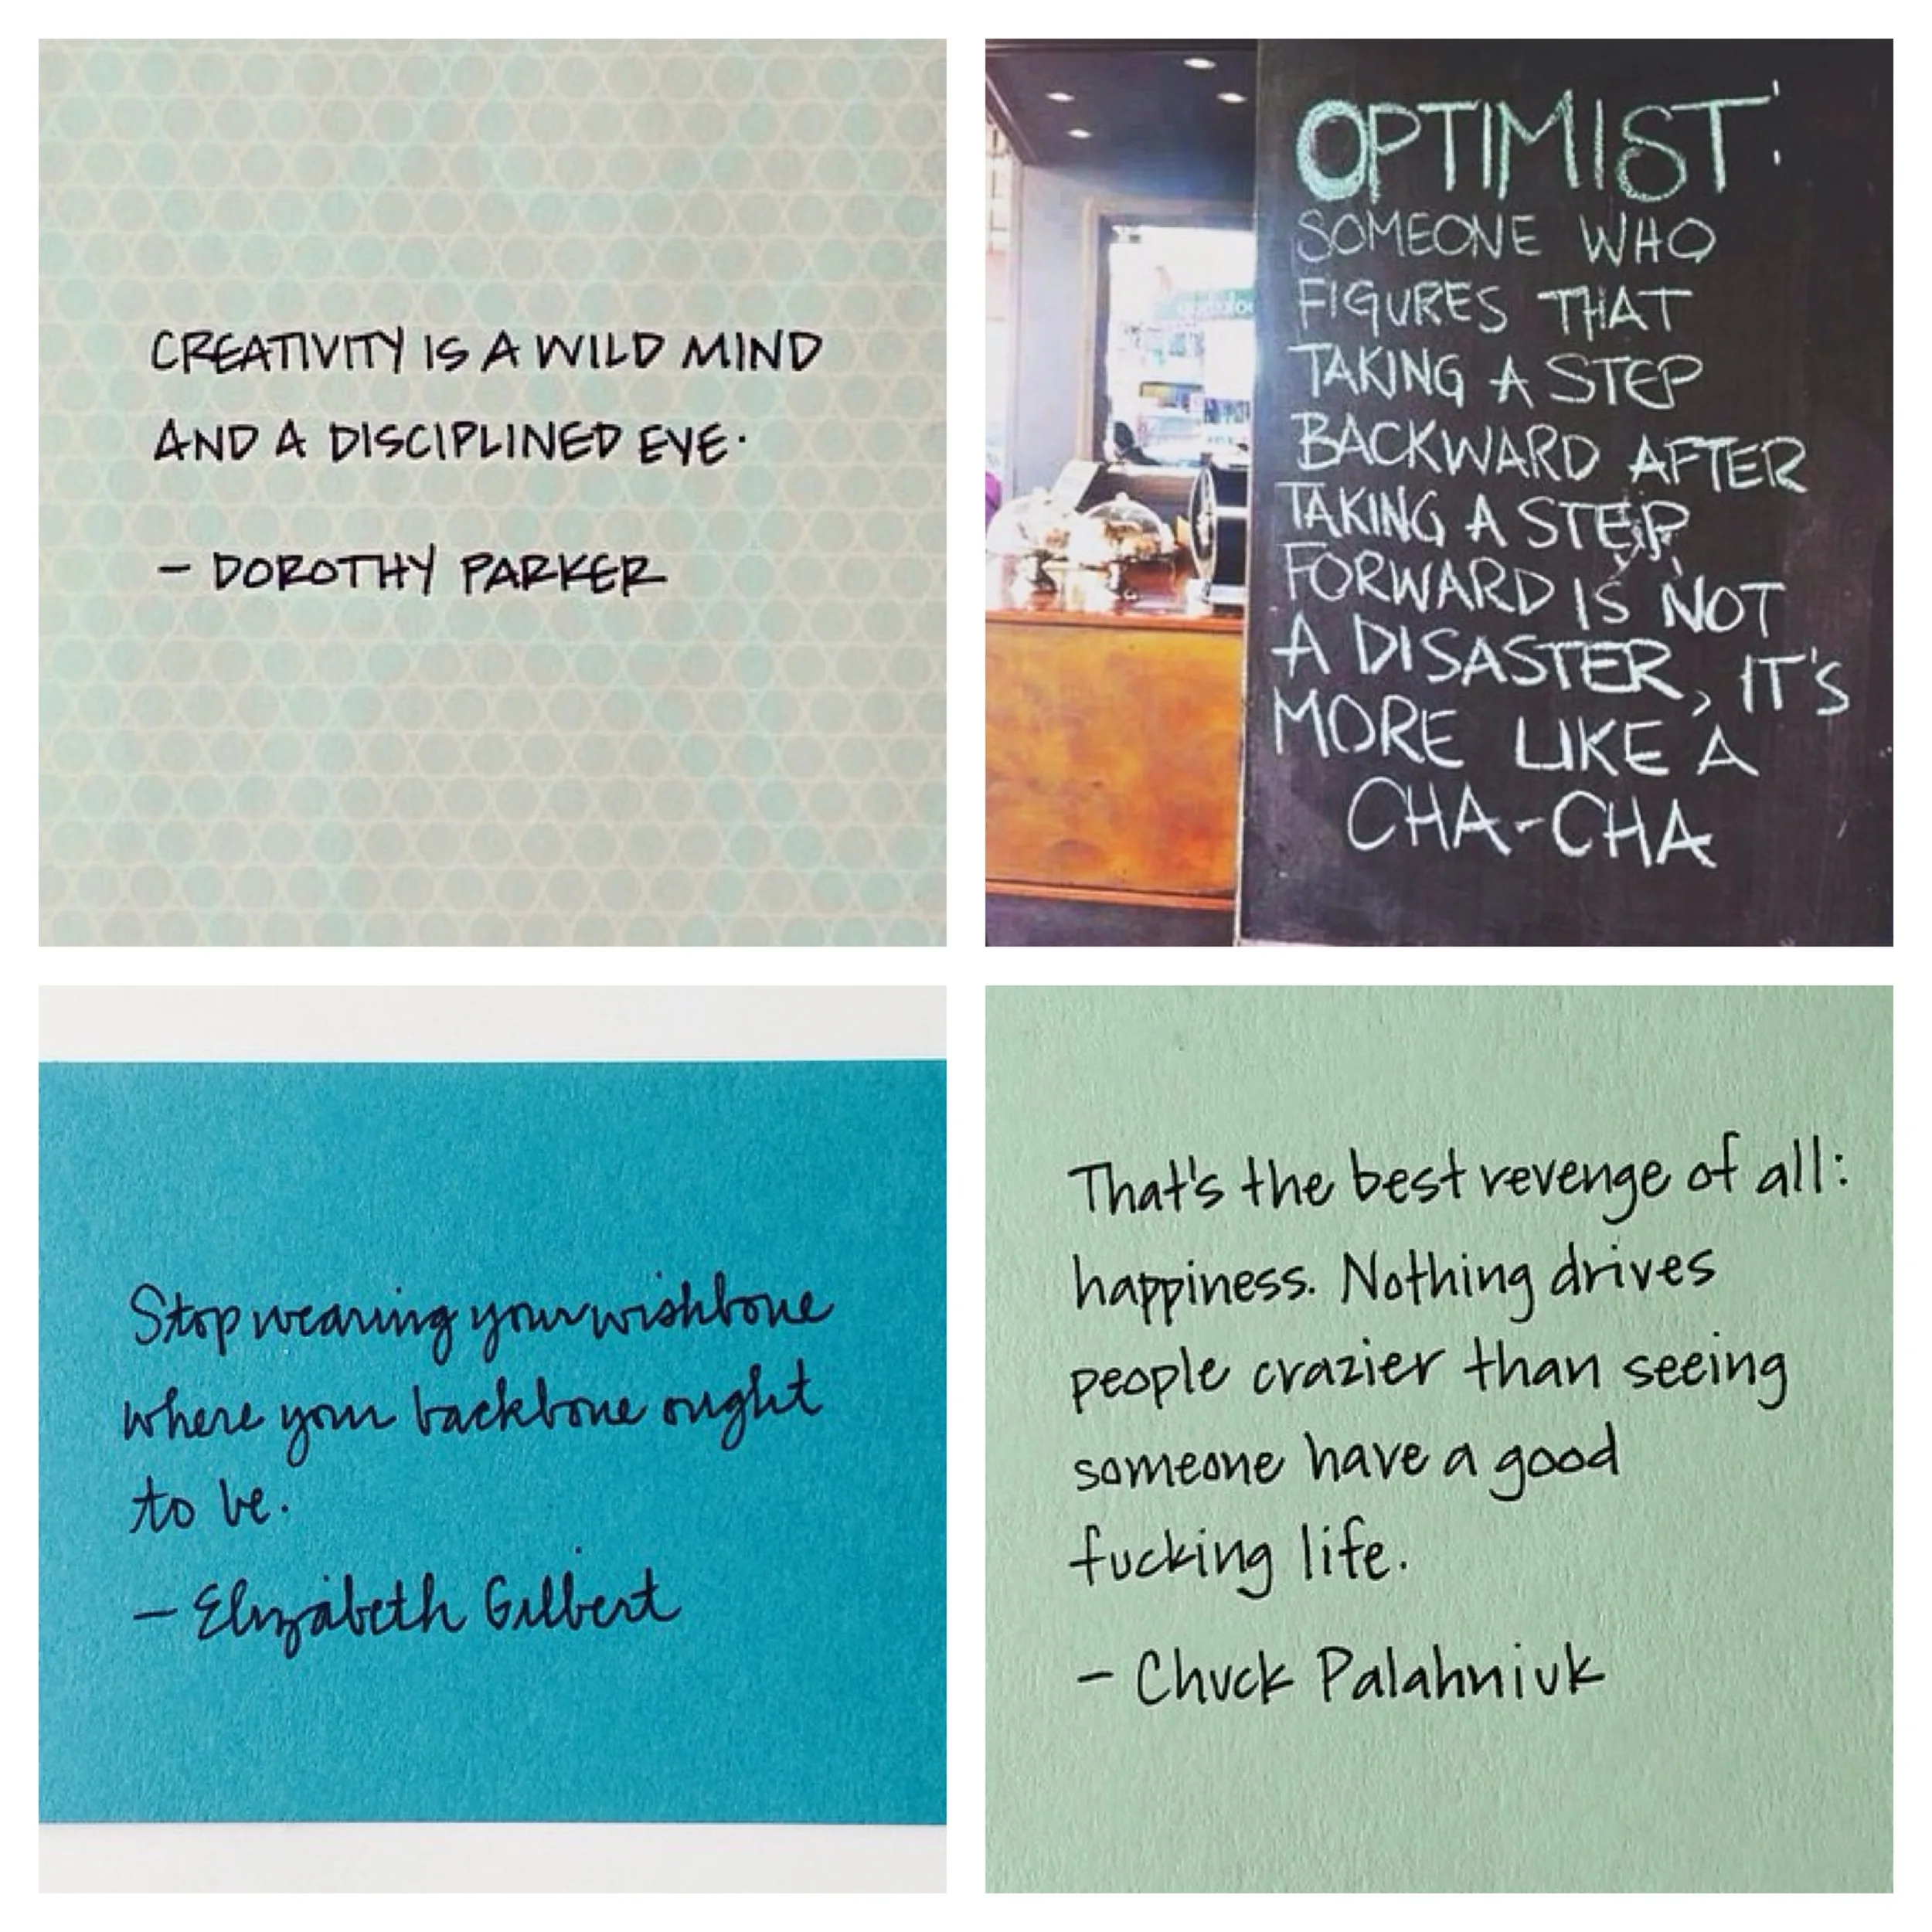 CREATIVITY IS A WILD MIND
AND A DISCIPLINED EYE.
- DOROTHY PARKER
OPTIMIST:
SOMEONE WHO
FIGURES THAT
TAKING A STEP
BACKWARD AFTER
TAKING A STEP
FORWARD IS NOT
A DISASTER, IT'S
MORE LIKE A
CHA-CHA
Stop wearing your wishbone
where your backbone ought
to be.
- Elizabeth Gilbert
That's the best revenge of all:
happiness. Nothing drives
people crazier than seeing
someone have a good
fucking life.
- Chuck Palahniuk